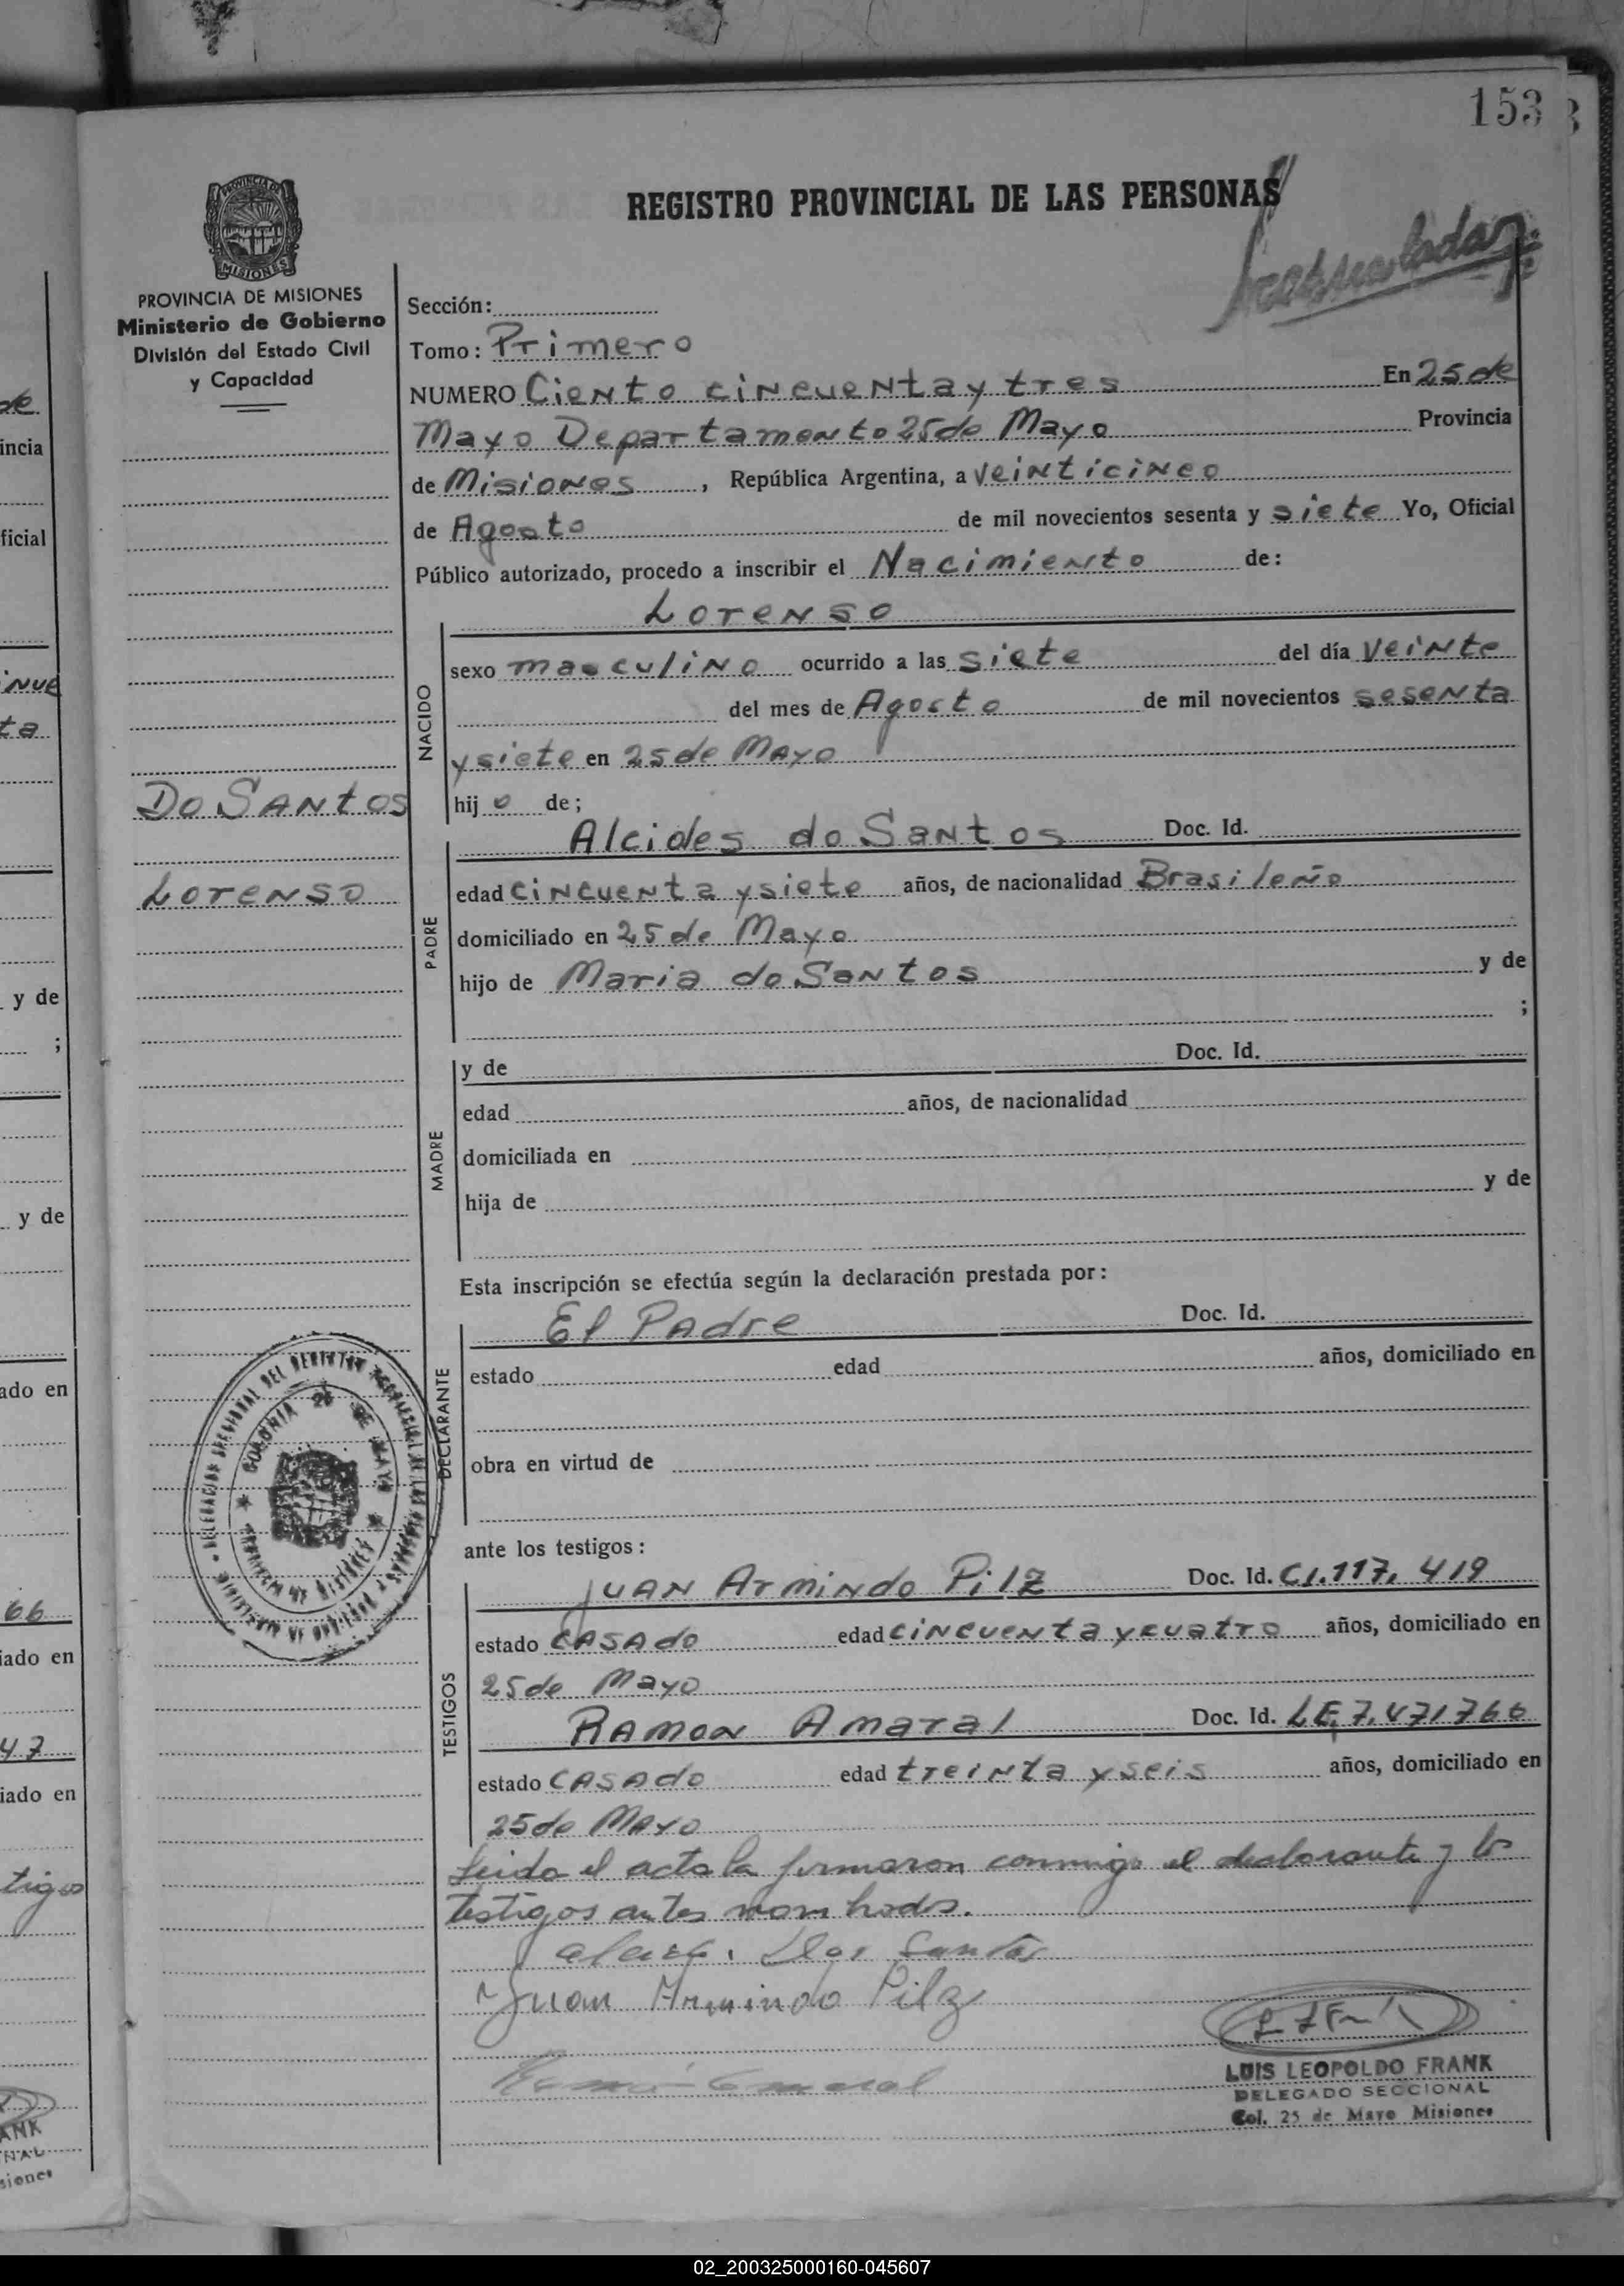 153
REGISTRO PROVINCIAL DE LAS PERSONAS
MISIONES
PROVINCIA DE MISIONES
Ministerio de Gobierno
División del Estado Civil
y Capacidad
Sección:
Tomo: Primero
NUMERO Ciento cincuenta y tres En 25 de
Mayo Departamento 25 de Mayo Provincia
de Misiones, República Argentina, a veinticinco
de Agosto de mil novecientos sesenta y siete Yo, Oficial
Público autorizado, procedo a inscribir el Nacimiento de:
Lorenso
NACIDO
sexo masculino ocurrido a las siete del día veinte
del mes de Agosto de mil novecientos sesenta
y siete en 25 de Mayo
Do Santos
Lorenso
hijo de;
Alcides do Santos Doc. Id.
PADRE
edad cincuenta y siete años, de nacionalidad Brasileño
domiciliado en 25 de Mayo
hijo de Maria do Santos y de
;
MADRE
y de Doc. Id.
edad años, de nacionalidad
domiciliada en
hija de y de
Esta inscripción se efectúa según la declaración prestada por:
El Padre Doc. Id.
DECLARANTE
estado edad años, domiciliado en
obra en virtud de
COLONIA 25 DE MAYO
ante los testigos:
Juan Armindo Pilz Doc. Id. C.I. 117. 419
TESTIGOS
estado casado edad cincuenta y cuatro años, domiciliado en
25 de Mayo
Ramon Amaral Doc. Id. LE, 7.471760
estado casado edad treinta y seis años, domiciliado en
25 de Mayo
Leida el acta la firmaron conmigo el declarante y los
testigos antes nombrados.
Santos
Juan Armindo Pilz
LUIS LEOPOLDO FRANK
DELEGADO SECCIONAL
Col. 25 de Mayo Misiones
de
incia
ficial
y de
;
y de
ado en
66
iado en
47
iado en
tigos
ANK
NAL
siones
02_200325000160-045607